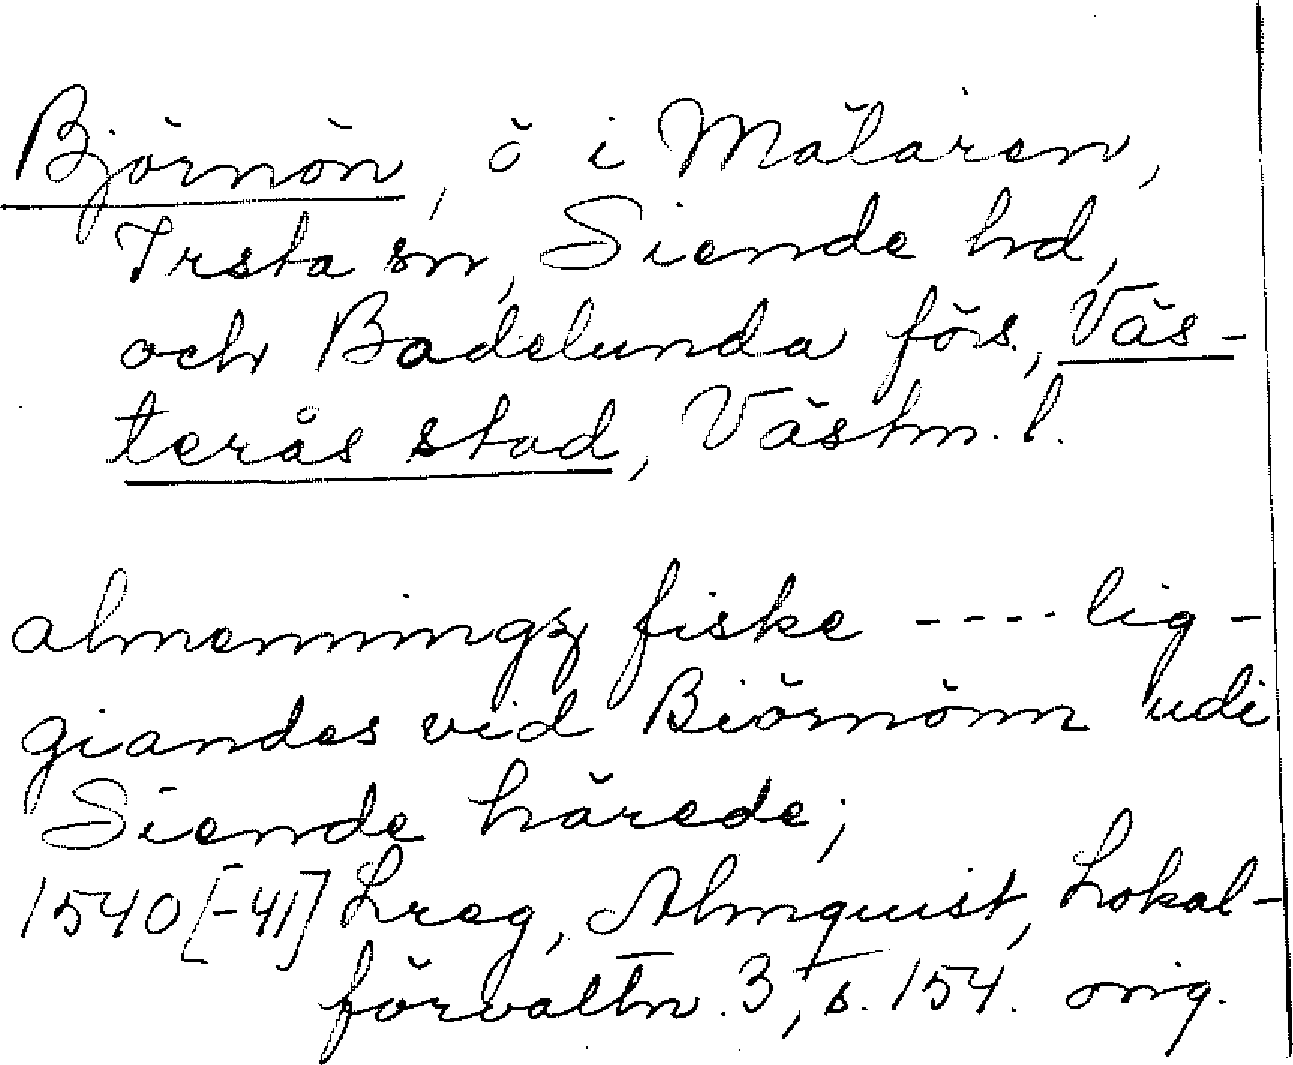 Björnön, ö i Mälaren,
Irsta sn, Siende hd,
och Badelunda förs., Väs-
terås stad, Västm. l.
almenningz fiske ---- lig-
giandes vid Biörnönn udi
Siende härede;
1540[-41] Lreg, Almquist, Lokal-
förvaltn. 3, s. 154. orig.